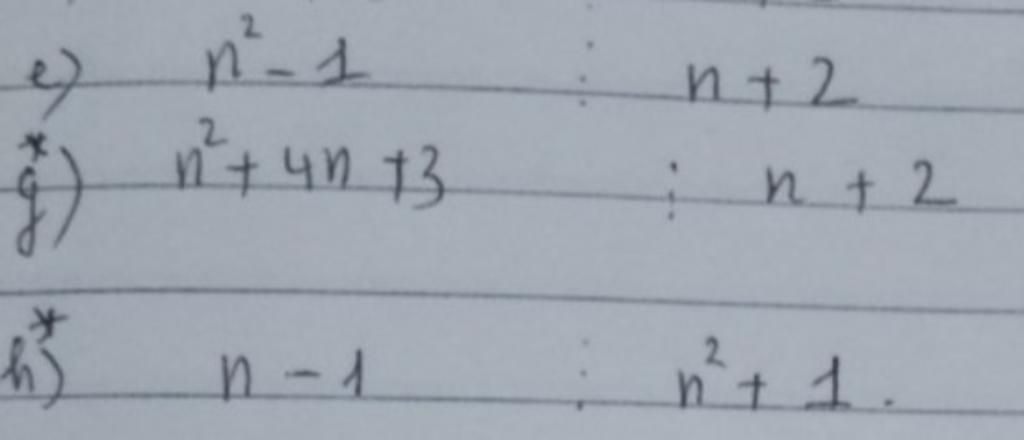 e) n² - 1 ⋮ n + 2
g*) n² + 4n + 3 ⋮ n + 2
h*) n - 1 ⋮ n² + 1.